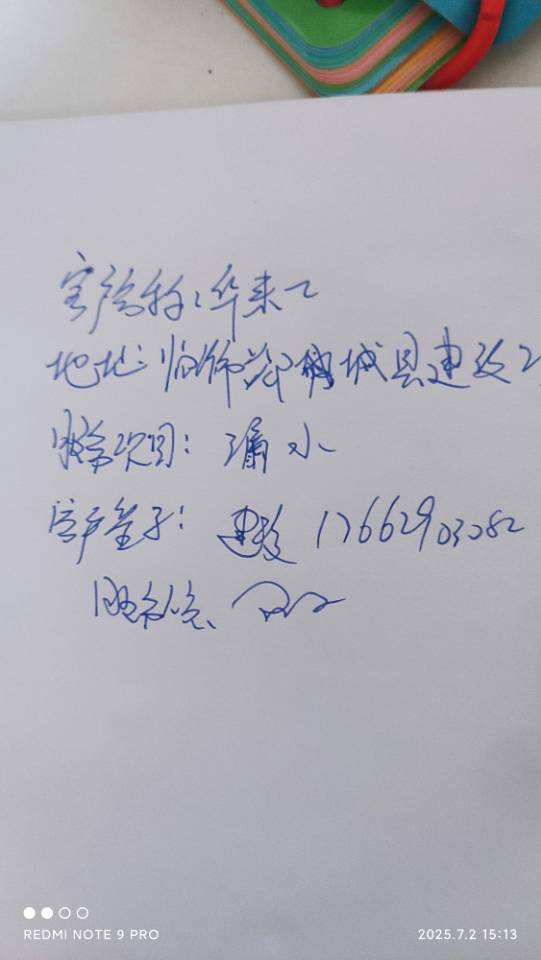 客户名称：华来
地址：临沂郯城县建设
服务项目：漏水
客户签字：建设 17662903282
服务人员
REDMI NOTE 9 PRO
2025.7.2 15:13